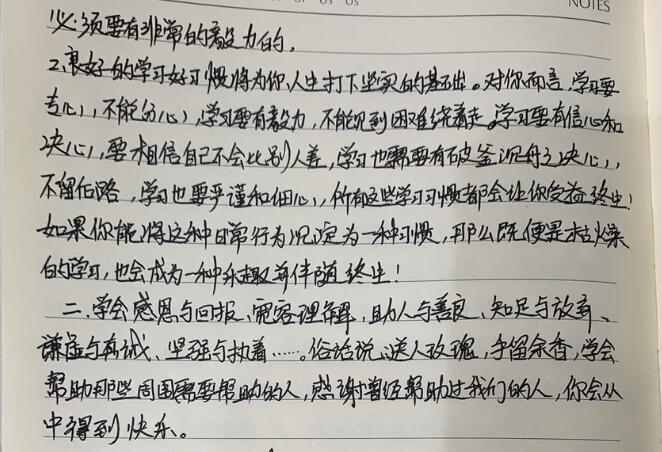 NOTES
必须要有非常的毅力的。
2、良好的学习好习惯将为你人生打下坚实的基础。对你而言,学习要
专心,不能分心,学习要有毅力,不能见到困难绕着走。学习要有信心和
决心,要相信自己不会比别人差,学习也需要有破釜沉舟之决心,
不留后路,学习也要严谨和细心,所有这些学习习惯都会让你受益终生!
如果你能将这种日常行为沉淀为一种习惯,那么既便是枯燥
的学习,也会成为一种乐趣并伴随终生!
二、学会感恩与回报、宽容理解、助人与善良、知足与放弃、
谦虚与真诚、坚强与执着……。俗话说,送人玫瑰,手留余香,学会
帮助那些周围需要帮助的人,感谢曾经帮助过我们的人,你会从
中得到快乐。